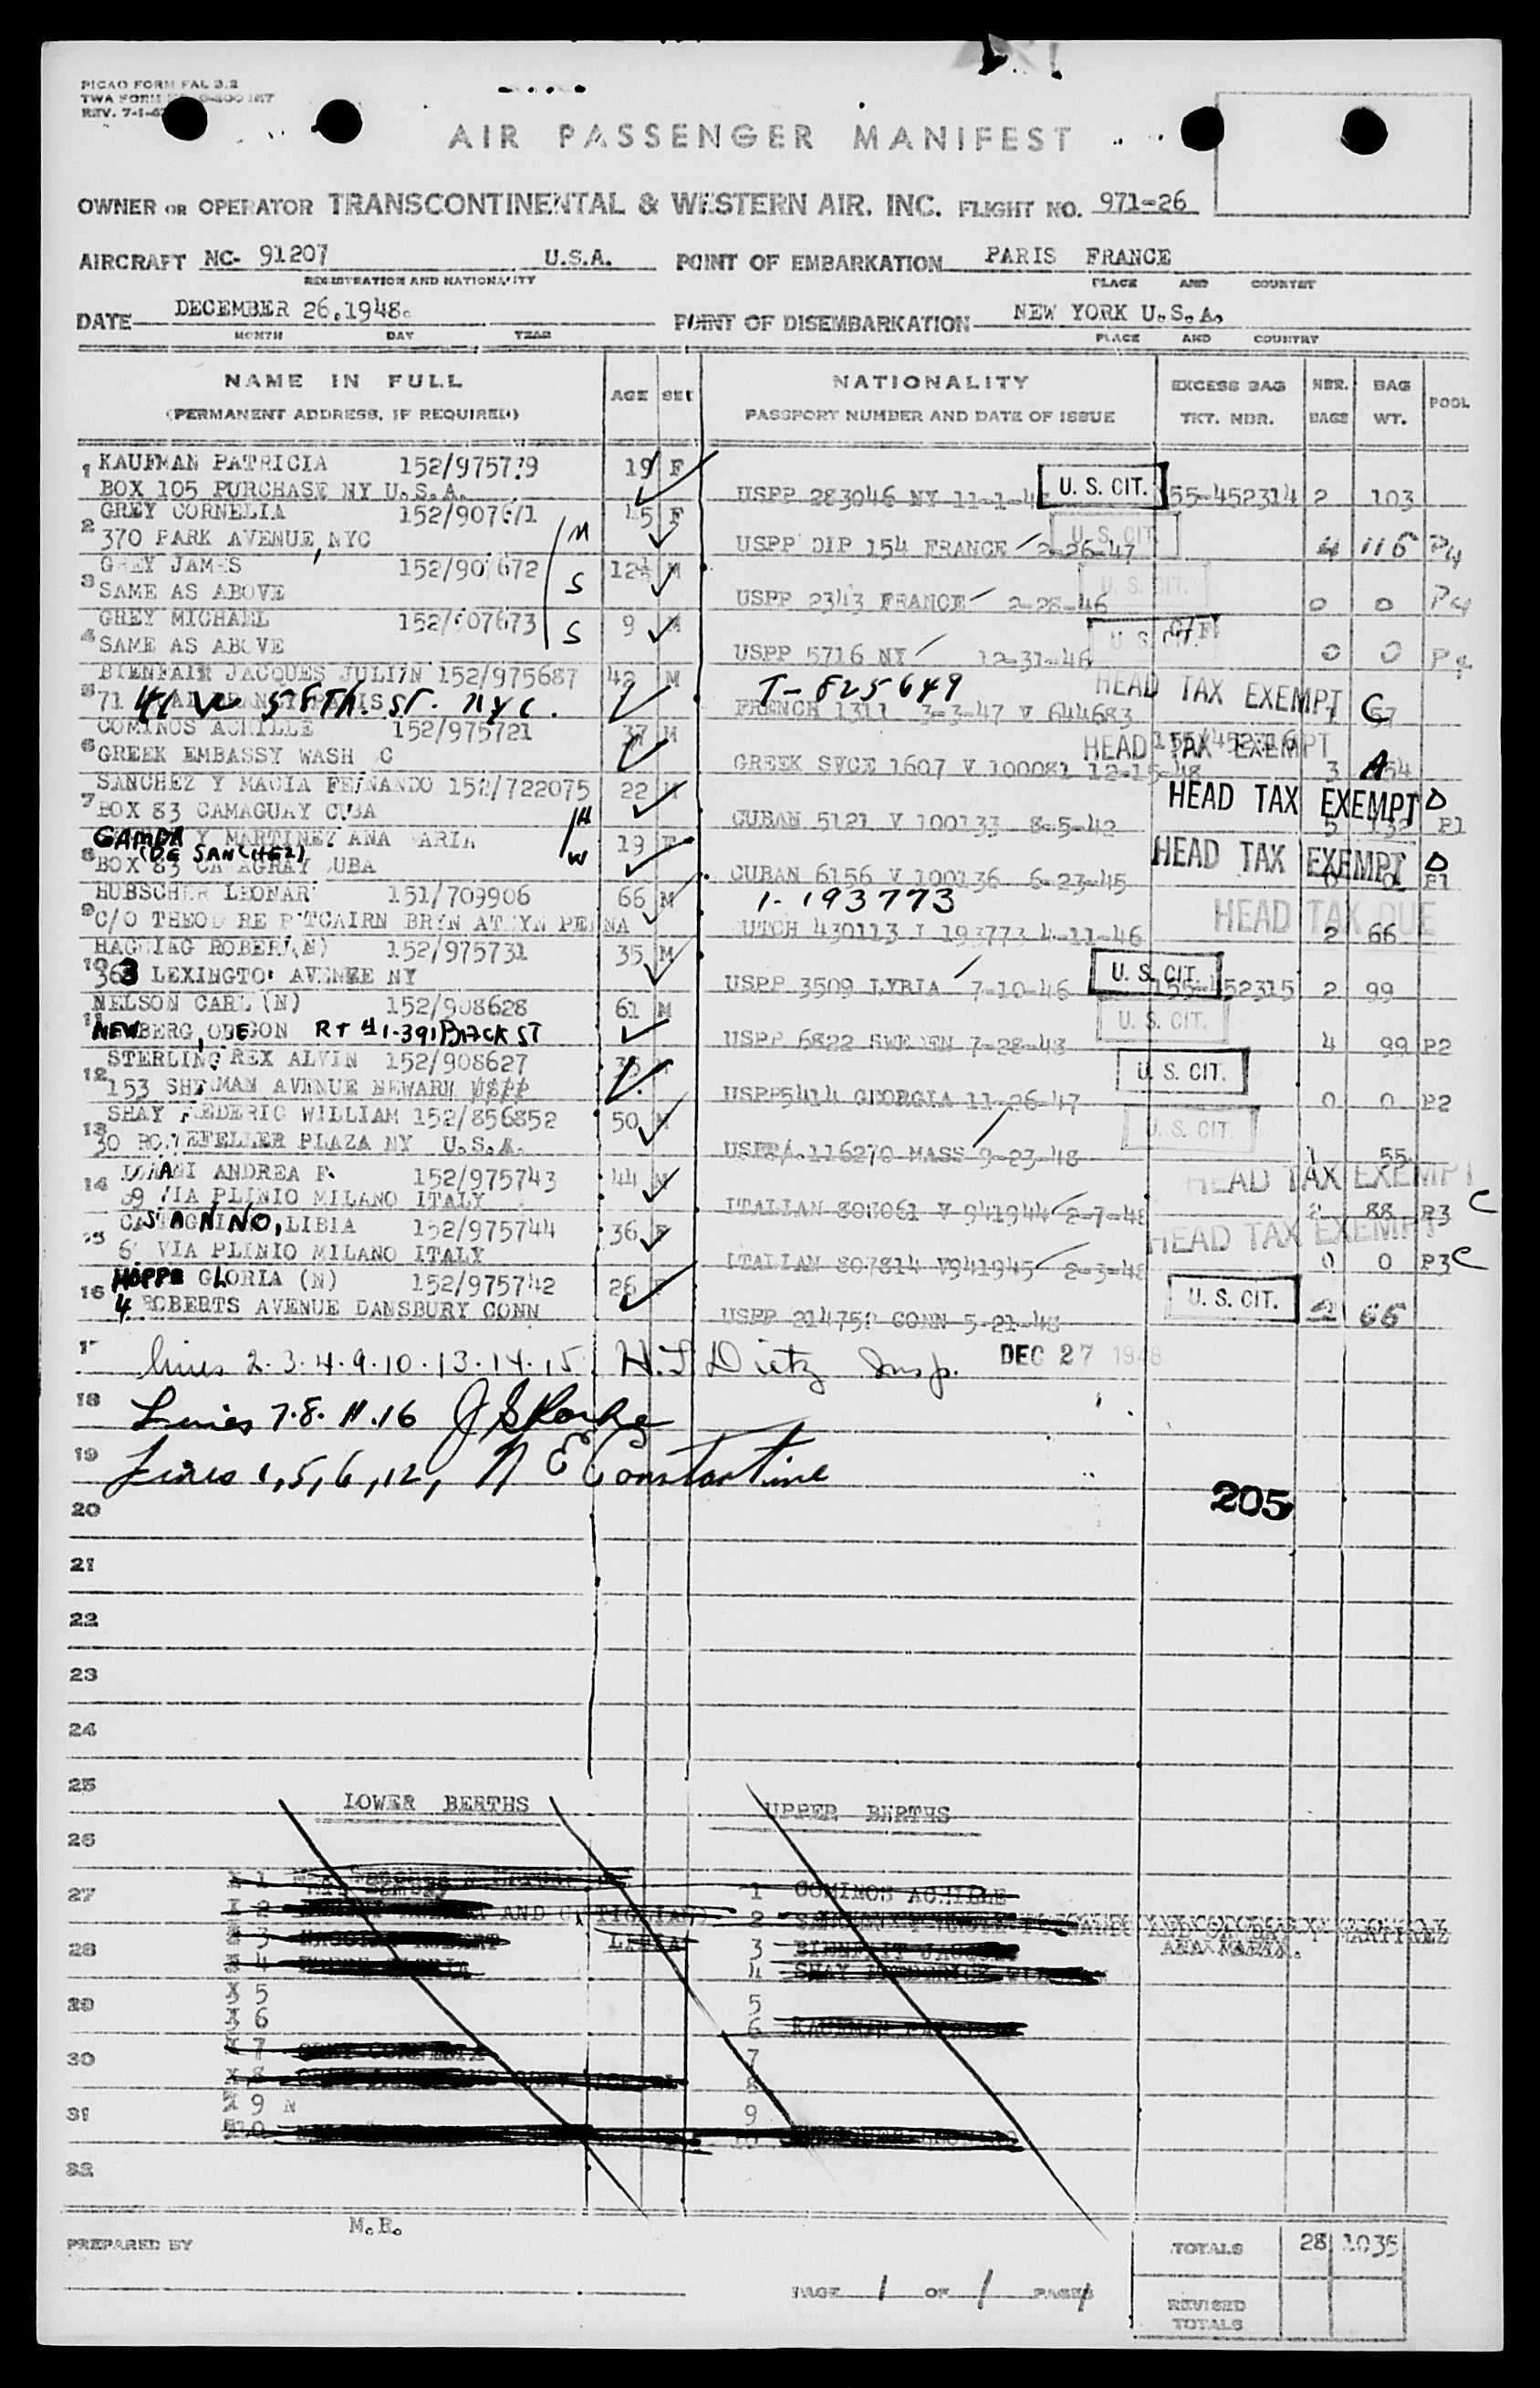 PICAO FORM FAL 3.2
TWA FORM
REV. 7-1-47
AIR PASSENGER MANIFEST
OWNER OR OPERATOR TRANSCONTINENTAL & WESTERN AIR, INC. FLIGHT NO. 971-26
AIRCRAFT NC- 91207 U.S.A. POINT OF EMBARKATION PARIS FRANCE
REGISTRATION AND NATIONALITY PLACE AND COUNTRY
DATE DECEMBER 26,1948. POINT OF DISEMBARKATION NEW YORK U.S.A.
MONTH DAY YEAR PLACE AND COUNTRY
NAME IN FULL AGE SEX NATIONALITY EXCESS BAG NBR. BAG POOL
(PERMANENT ADDRESS, IF REQUIRED) PASSPORT NUMBER AND DATE OF ISSUE TKT. NBR. BAGS WT.
1 KAUFMAN PATRICIA 152/975729 19 F
BOX 105 PURCHASE NY U.S.A. USPP 283046 NY 11-1- U. S. CIT. 155-452314 2 103
2 GREY CORNELIA 152/907671 45 F
370 PARK AVENUE, NYC M USPP DIP 154 FRANCE 2-26-47 U. S. CIT. 4 116 P4
3 GREY JAMES 152/907672 12½ M
SAME AS ABOVE S USPP 2343 FRANCE 2-28-46 U. S. CIT. 0 0 P4
4 GREY MICHAEL 152/907673 9 M
SAME AS ABOVE S USPP 5716 NY 12-31-46 U. S. CIT. 0 0 P4
5 BIENFAIT JACQUES JULIEN 152/975687 42 M T-825649 HEAD TAX EXEMPT C
71 41 W 58Th. ST. NYC. FRENCH 1311 3-3-47 V 644683 57
6 COMINOS ACHILLE 152/975721 37 M HEAD TAX EXEMPT
GREEK EMBASSY WASH GREEK SVCE 1607 V 100081 12-15-48 3 A 54
7 SANCHEZ Y MACIA FERNANDO 152/722075 22 M HEAD TAX EXEMPT D
BOX 83 CAMAGUAY CUBA H CUBAN 5121 V 100133 8-5-42 5 132 P1
8 GAMBA Y MARTINEZ ANA MARIA 19 F HEAD TAX EXEMPT D
(DE SANCHEZ)
BOX 83 CAMAGRAY CUBA W CUBAN 6156 V 100136 6-23-45 0 0 P1
9 HUBSCHER LEONARD 151/709906 66 M I-193773 HEAD TAX DUE
C/O THEODORE PITCAIRN BRYN ATHYN PENNA DUTCH 430113 I 193773 4-11-46 2 66
10 ROBERT(N) 152/975731 35 M
363 LEXINGTON AVENUE NY USPP 3509 LYBIA 7-10-46 U. S. CIT. 155-452315 2 99
11 NELSON CARL (N) 152/908628 61 M
NEWBERG, OREGON RT #1-391 USPP 6822 SWEDEN 7-28-48 U. S. CIT. 4 99 P2
12 STERLING REX ALVIN 152/908627 35
153 SHERMAN AVENUE NEWARK USPP5414 GEORGIA 11-26-47 U. S. CIT. 0 0 P2
13 SHAY FREDERIC WILLIAM 152/856852 50 M
30 ROCKEFELLER PLAZA NY U.S.A. 116270 MASS 9-23-48 U. S. CIT. 1 55
14 ANDREA F. 152/975743 44 M HEAD TAX EXEMPT
69 VIA PLINIO MILANO ITALY ITALIAN 807061 V 941944 2-7-48 2 88 P3 C
15 CASTAGNINO, LIBIA 152/975744 36 F HEAD TAX EXEMPT
VIA PLINIO MILANO ITALY ITALIAN 807814 V941945 2-3-48 0 0 P3 C
16 HOPPE GLORIA (N) 152/975742 26 F
4 ROBERTS AVENUE DANSBURY CONN USPP CONN 5-21-48 U. S. CIT. 2 66
17 lines 2.3.4.9.10.13.14.15. H.J Dietz Insp. DEC 27 1948
18 Lines 7.8.11.16
19 Lines 1,5,6,12, N E Constantine
205
20
21
22
23
24
25
LOWER BERTHS UPPER BERTHS
26
27
1
1 COMINOS ACHILLE
2
2
28
3 LIBIA
3 BIENFAIT JACQUES
4
4 SHAY
29
5
5
6
6
30
7
7
8
31
9 N
9
10
32
M.B.
PREPARED BY
TOTALS 28 1035
PAGE 1 OF 1 PAGES
REVISED
TOTALS